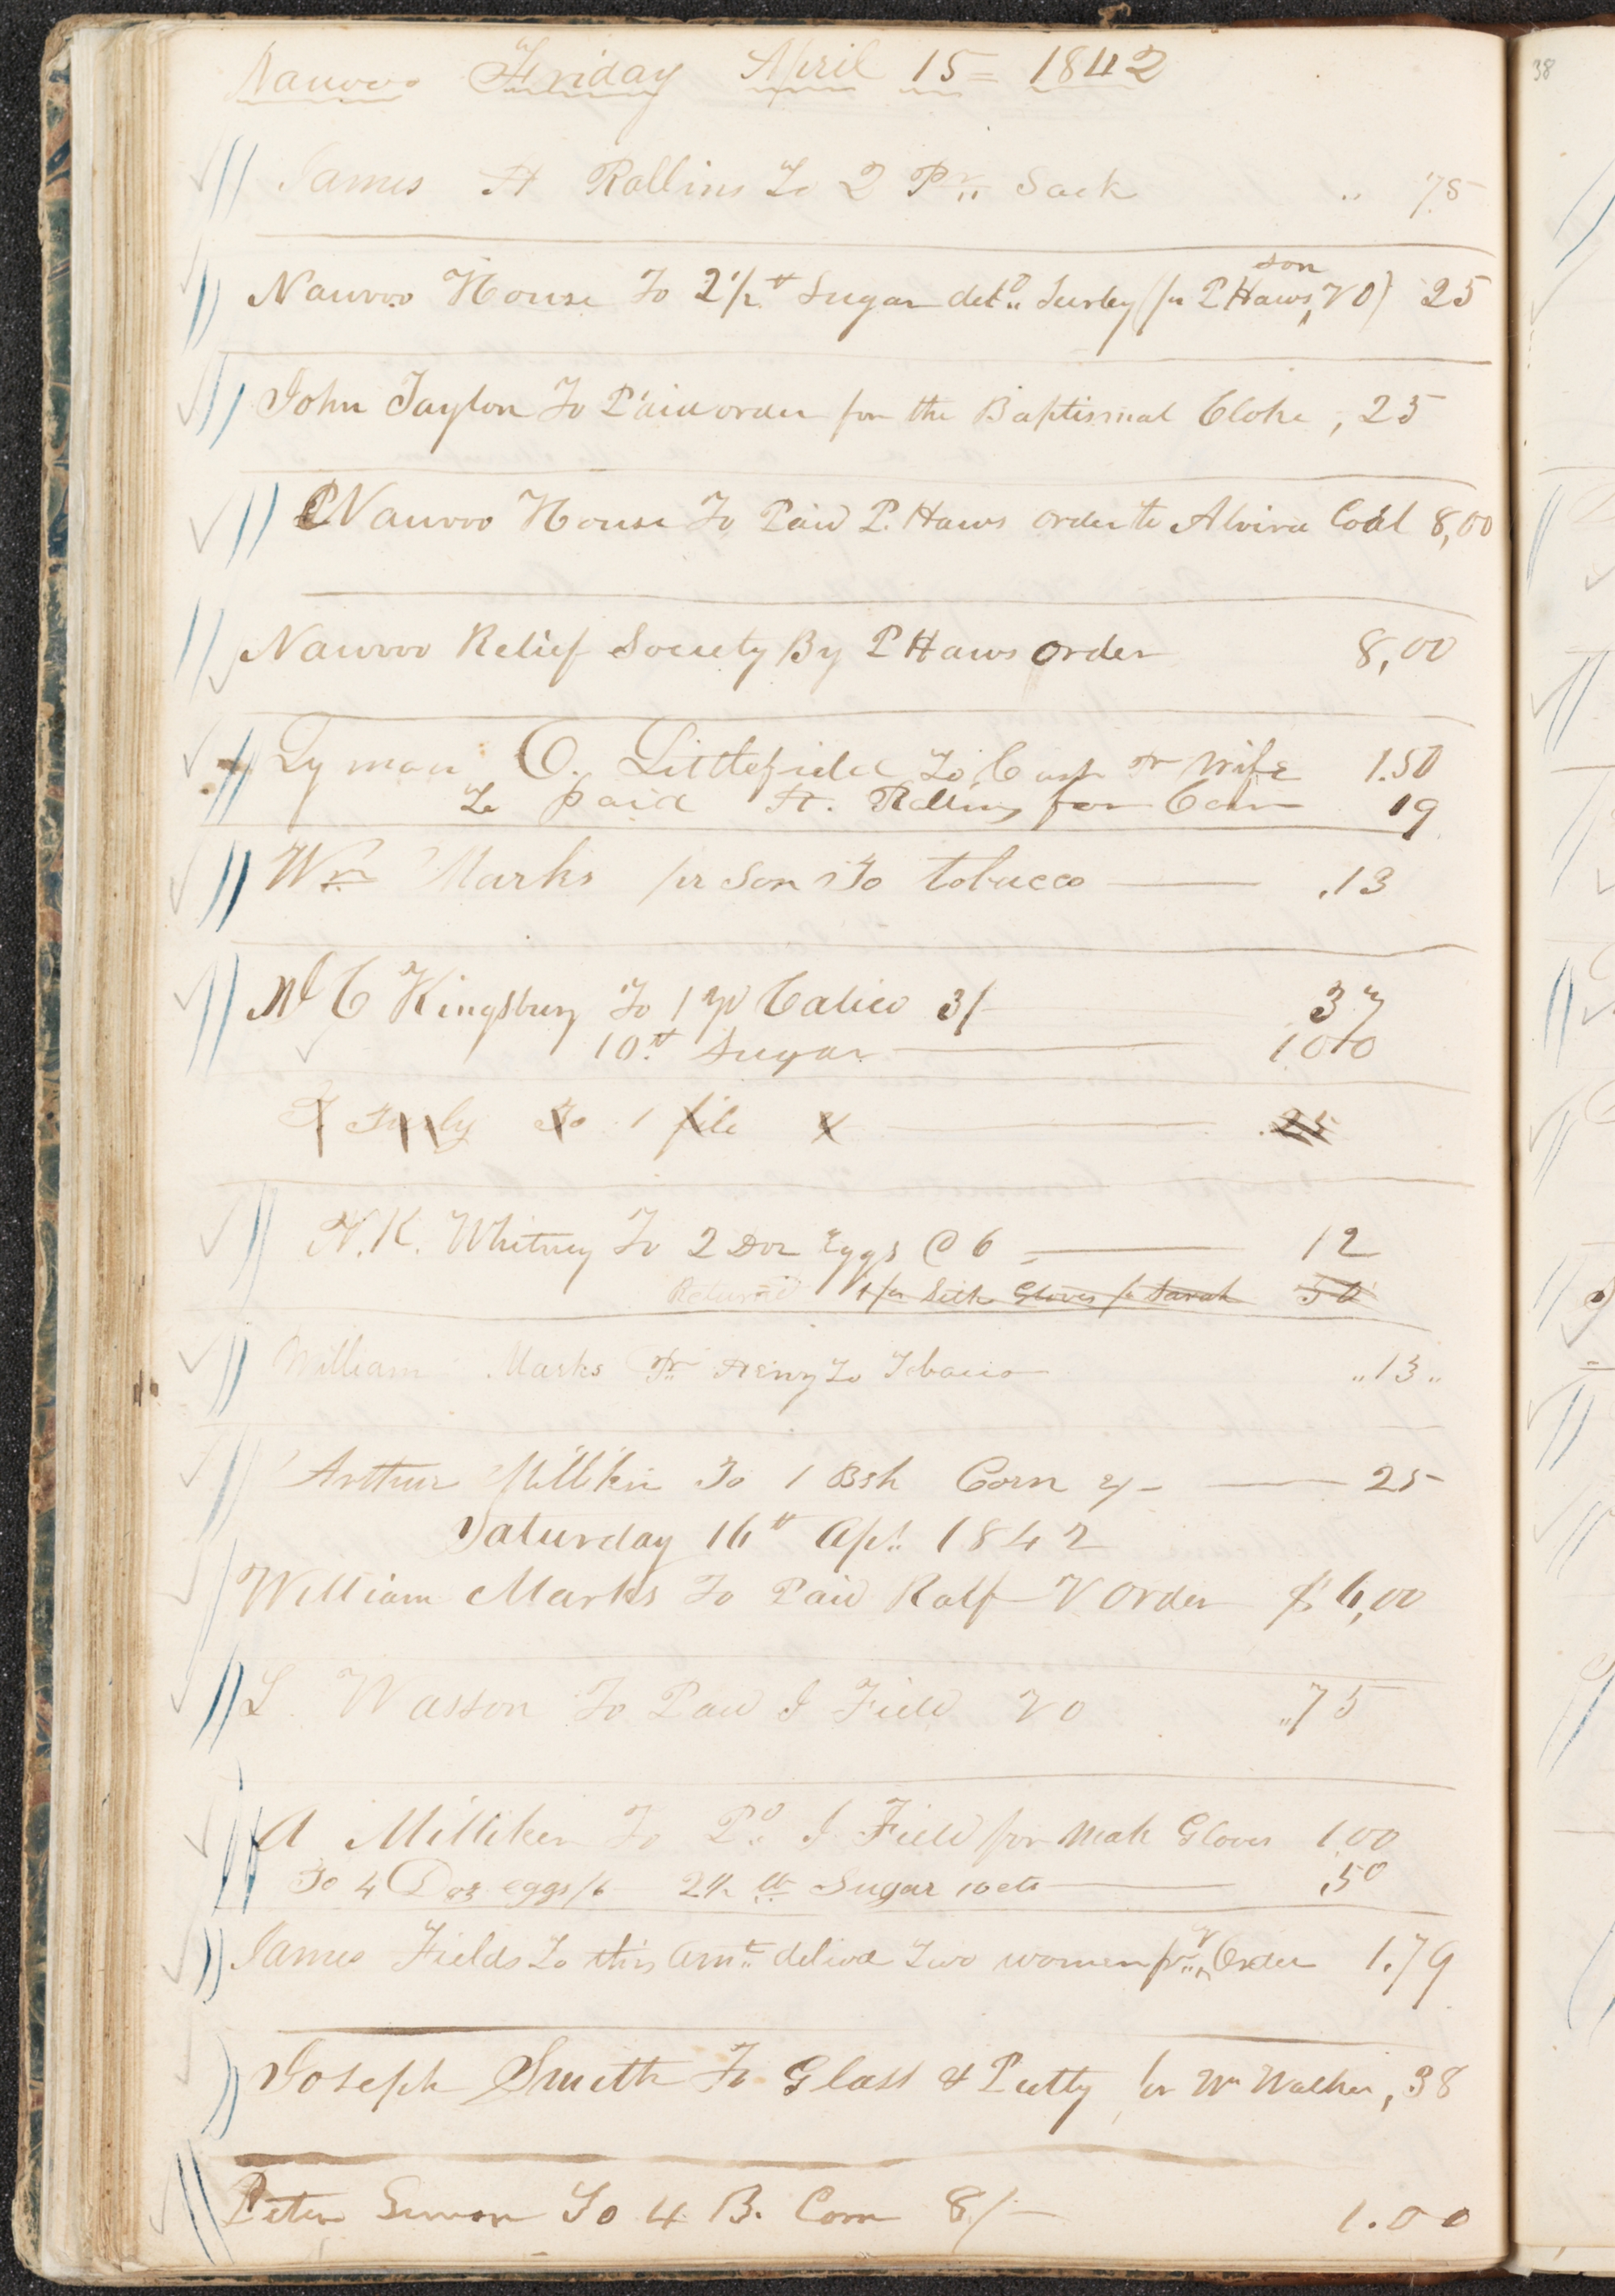 Nauvoo Friday April 15= 1842
38
James H Rollins To 2 Pr Sack .. 75
son
Nauvoo House To 2 1/2 # Sugar deld Turley (pr P Haws, VO) 25
John Taylor To Paid order for the Baptismal Cloke , 25
Nauvoo House To Paid P. Haws order to Alvira Coal 8,00
Nauvoo Relief Society By P Haws order 8,00
Lyman O. Littlefield To Cash Pr Wife 1.50
To paid H. Rollins for Corn 19
Wm Marks per Son To tobacco .13
J C Kingsbury To 1 yd Calico 3/- 37
10 # Sugar 1.00
T Turly To 1 file .25
N. K. Whitney To 2 Doz Eggs @ 6 12
Returned 1 pr Silk Gloves pr Sarah 50
William Marks Pr Henry To Tobacco ..13..
Arthur Milliken To 1 Bsh Corn 2/- 25
Saturday 16th Apl. 1842
William Marks To Paid Ralf V Order $ 6,00
L Wasson To Paid J Field VO ..75
A Milliken To Pd J Field for Mak Gloves 1.00
To 4 Doz eggs /6 2 1/2 lb Sugar 10 cts ,50
James Fields To this Amt delivd Two women pr V Order 1.79
Joseph Smith To Glass & Putty pr Wm Walker , 38
Peter Simon To 4 B. Corn 8/- 1.00